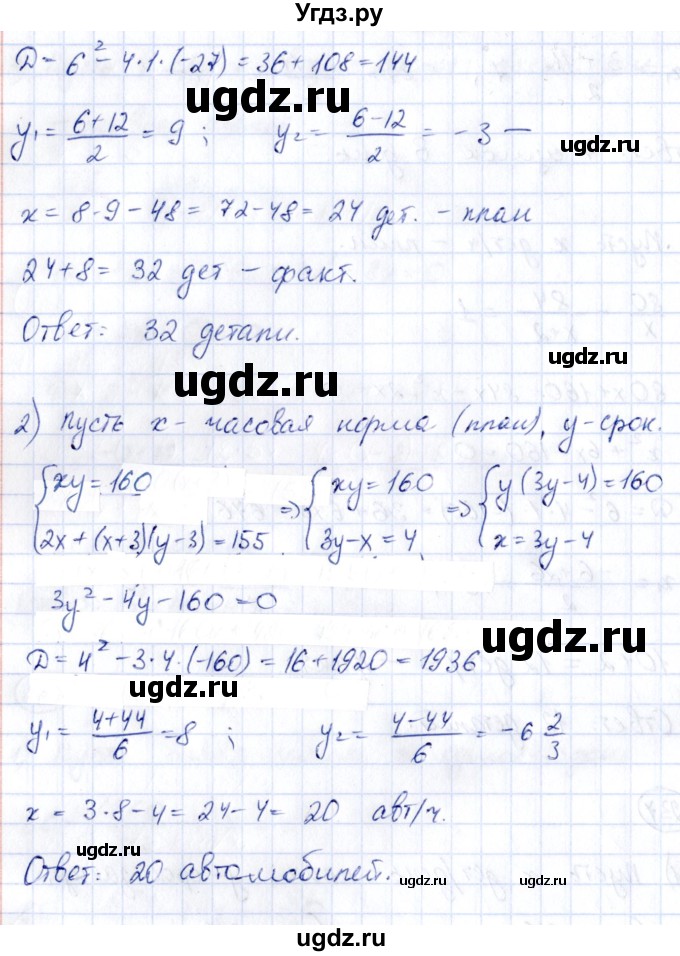 Угдз.ру
D = 6² - 4·1·(-27) = 36 + 108 = 144
ugdz.ru
y₁ = (6+12)/2 = 9 ; y₂ = (6-12)/2 = -3 —
ugdz.ru
x = 8·9 - 48 = 72 - 48 = 24 дет. - план
24 + 8 = 32 дет - факт.
Ответ: 32 детали.
ugdz.ru
ugdz.ru
2) Пусть x - часовая норма (план), y - срок.
{xy = 160 => {xy = 160 => {y(3y-4) = 160
{2x + (x+3)(y-3) = 155 {3y - x = 4 {x = 3y - 4
3y² - 4y - 160 = 0
ugdz.ru
D = 4² - 3·4·(-160) = 16 + 1920 = 1936
ugdz.ru
y₁ = (4+44)/6 = 8 ; y₂ = (4-44)/6 = -6 2/3
x = 3·8 - 4 = 24 - 4 = 20 авт/ч.
ugdz.ru
Ответ: 20 автомобилей.
ugdz.ru
ugdz.ru
ugdz.ru